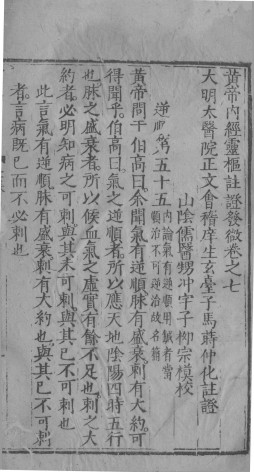 黃帝內經靈樞註證發微卷之七
大明太醫院正文會稽庠生玄臺子馬蒔仲化註證
山陰儒醫甥冲宇子柳宗模校
逆順第五十五
內論氣有逆順用鍼者當
順治不可逆治故名篇
黃帝問于伯高曰余聞氣有逆順脉有盛衰刺有大約可
得聞乎伯高曰氣之逆順者所以應天地陰陽四時五行
也脉之盛衰者所以候血氣之虛實有餘不足也刺之大
約者必明知病之可刺與其未可刺與其已不可刺也
此言氣有逆順脉有盛衰刺有大約也與其已不可刺
者言病既已而不必刺也